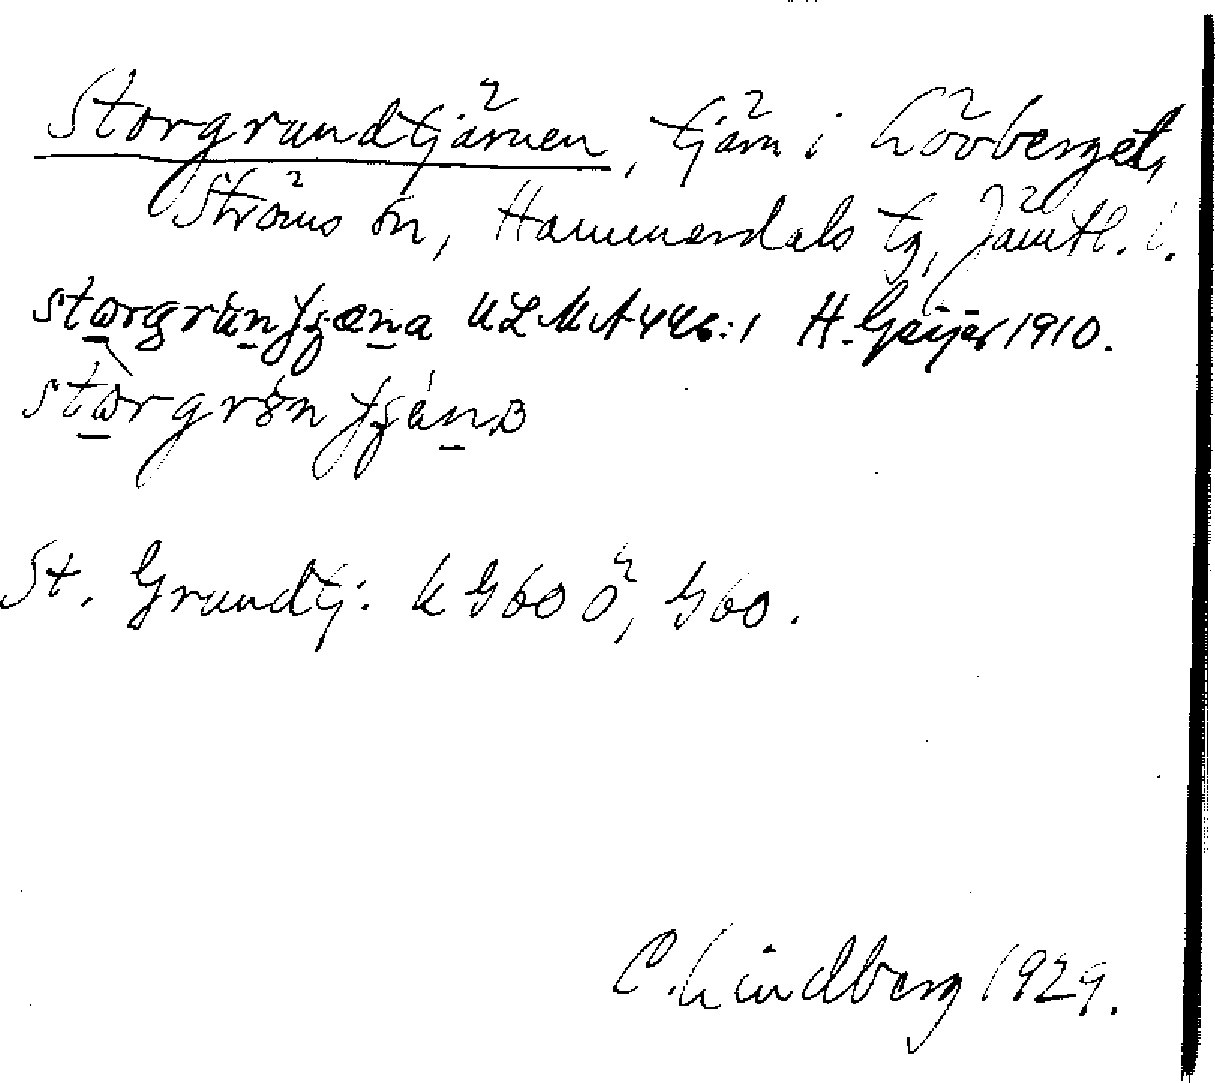 Storgrundtjärnen, tjärn i Lövberget,
Ströms sn, Hammerdals tg, Jämtl. l.
ULMA 446:1 H. Geijer 1910.
St. Grundtj: k G60 Ö, G60.
C. Lindberg 1929.